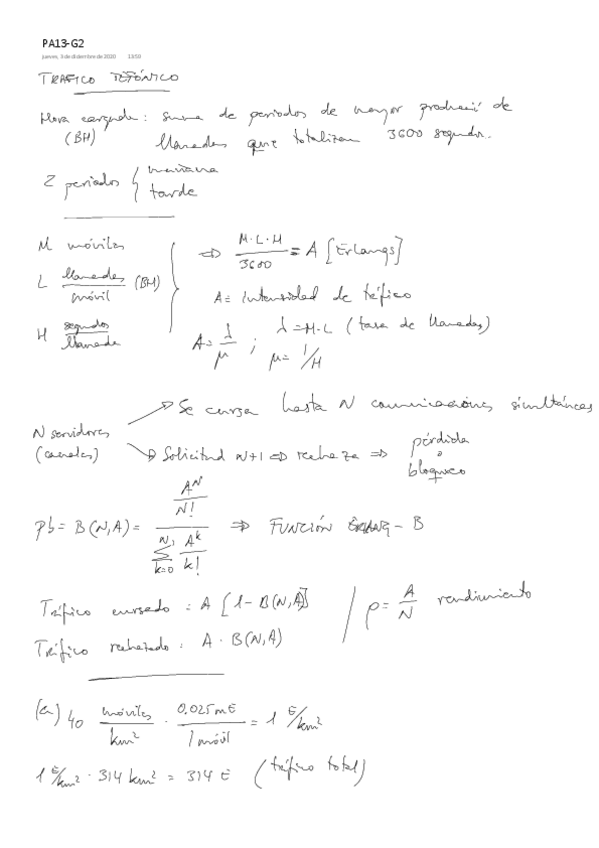 PA13-G2
jueves, 3 de diciembre de 2020 13:10
TRAFICO TEFÓNICO
Hora cargada: suma de periodos de mayor producció de
(BH) llamadas que totalizan 3600 segundos.
2 periodos { mañana
tarde
M móviles
L llamadas/móvil (BH)
H segundos/llamada
⇒ M·L·H/3600 = A [Erlangs]
A ≡ Intensidad de tráfico
A = λ/μ ; λ = M·L (tasa de llamadas)
μ = 1/H
N servidores
(canales)
Se cursa hasta N comunicaciones simultáneas
Solicitud N+1 ⇒ rechaza ⇒ pérdida
o
bloqueo
pb = B(N,A) = (A^N/N!)/(∑_{k=0}^{N} A^k/k!) ⇒ FUNCIÓN ERLANG-B
Tráfico cursado: A [1-B(N,A)] / ρ = A/N rendimiento
Tráfico rechazado: A · B(N,A)
(a) 40 móviles/km² · 0.025mE/1 móvil = 1 E/km²
1 E/km² · 314 km² = 314 E (tráfico total)